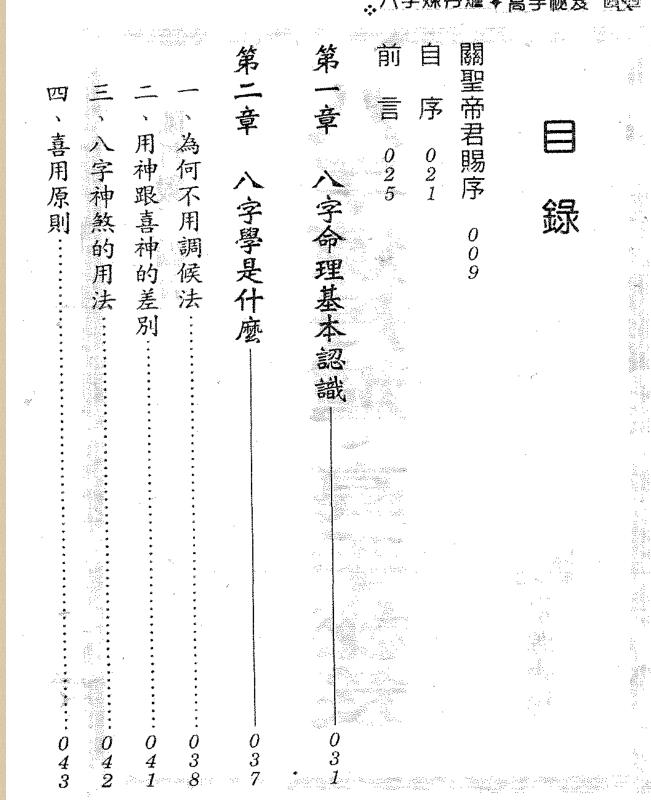 目錄
關聖帝君賜序 009
自序 021
前言 025
第一章 八字命理基本認識 031
第二章 八字學是什麼 037
一、為何不用調候法 038
二、用神跟喜神的差別 041
三、八字神煞的用法 042
四、喜用原則 043